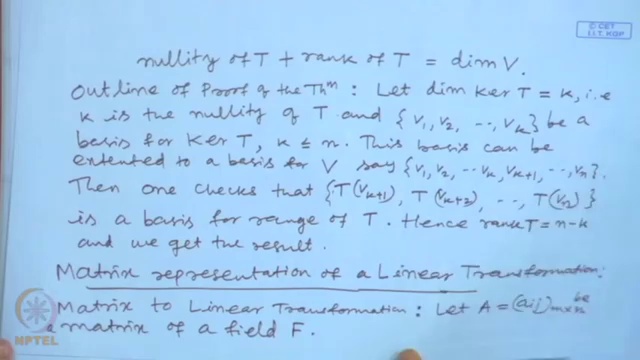 © CET
I.I.T. KGP
nullity of T + rank of T = dim V.
Outline of Proof of the Thm : Let dim Ker T = k, i.e
k is the nullity of T and {v1, v2, .., vk} be a
basis for Ker T, k ≤ n. This basis can be
extented to a basis for V say {v1, v2, .. vk, vk+1, .., vn}.
Then one checks that {T(vk+1), T(vk+2), .., T(vn)}
is a basis for range of T. Hence rank T = n-k
and we get the result.
Matrix representation of a Linear Transformation:
Matrix to Linear Transformation : Let A = (aij)m×n be
a matrix of a field F.
NPTEL